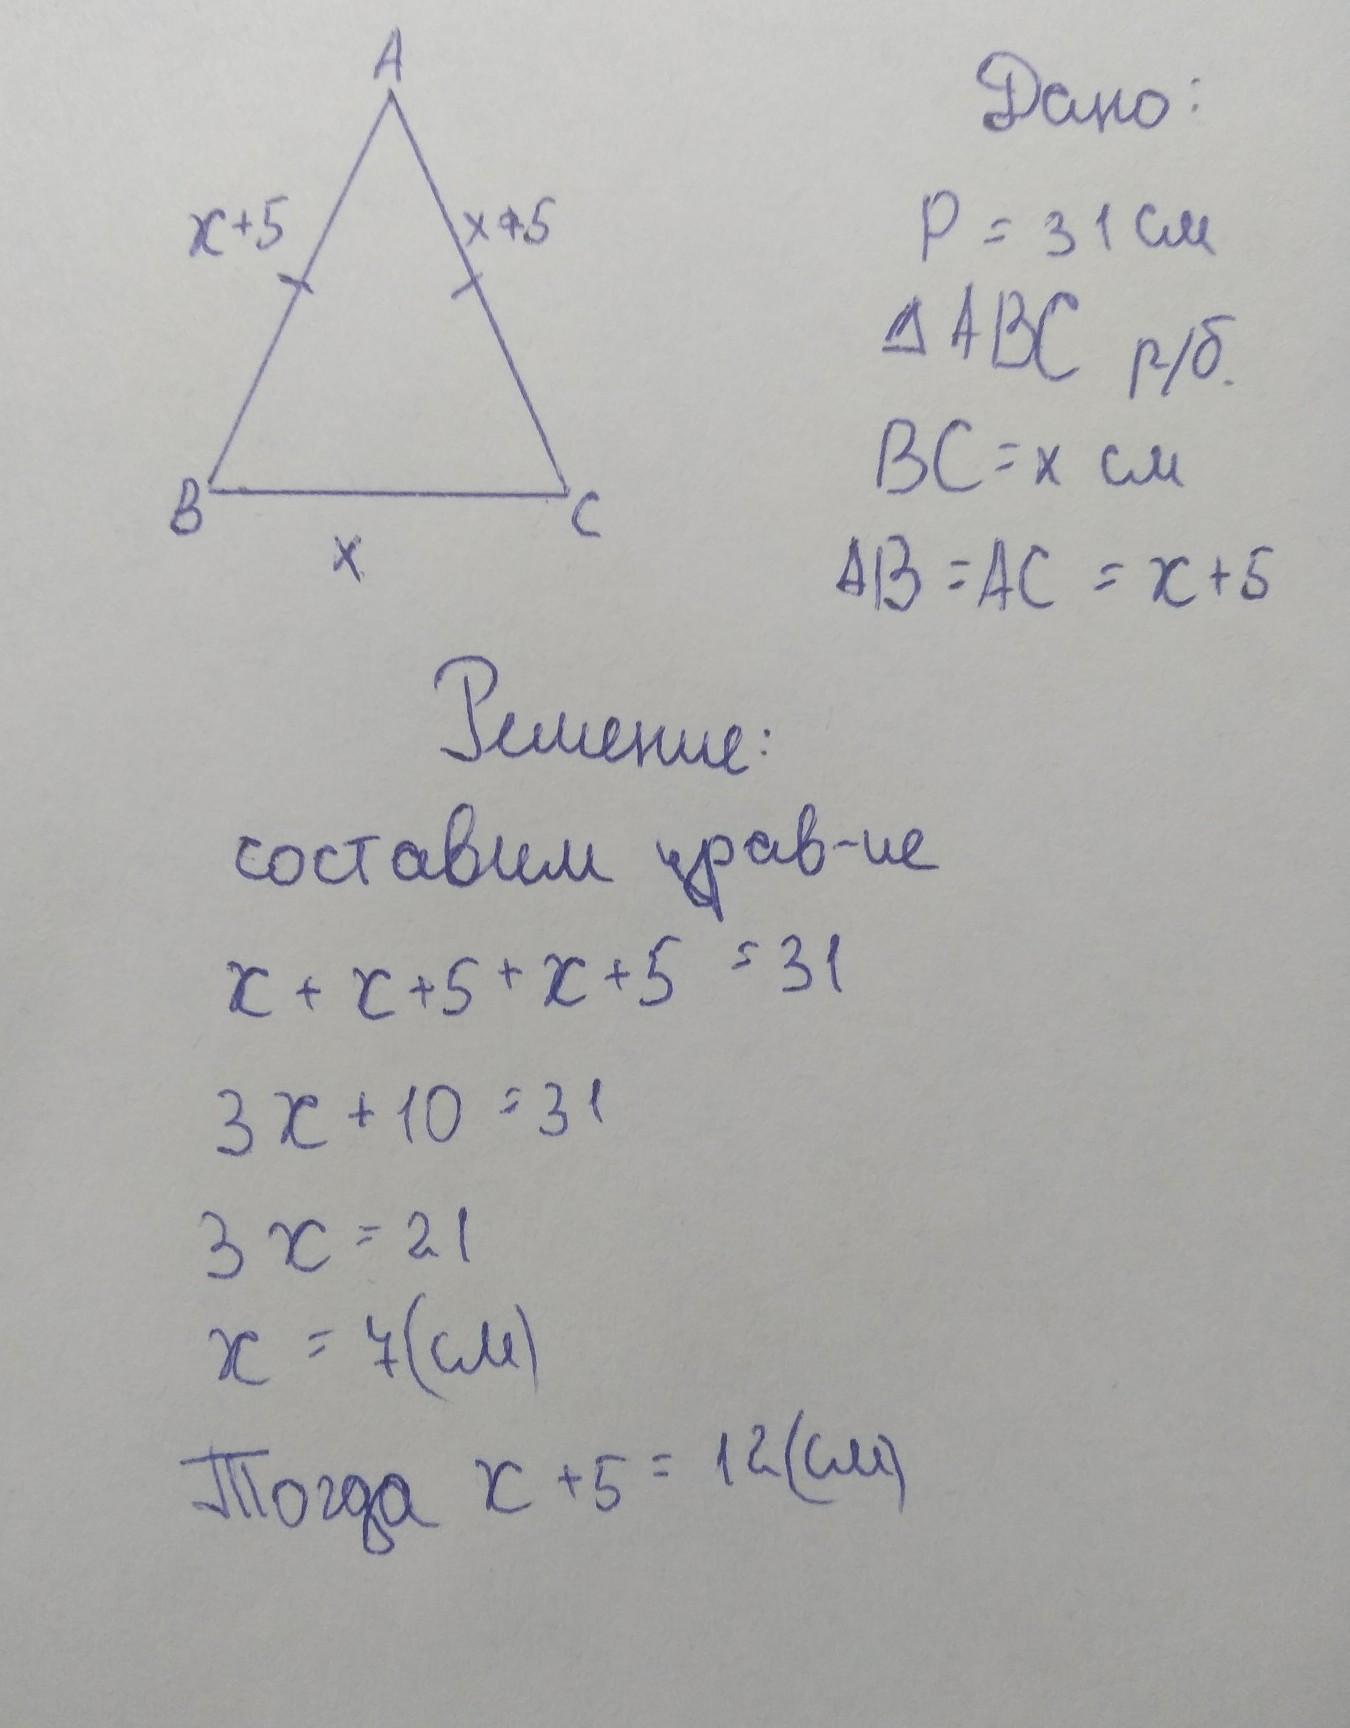 A
x+5
x+5
B
C
x
Дано:
P = 31 см
△ABC р/б.
BC = x см
AB = AC = x+5
Решение:
составим урав-ие
x + x+5 + x+5 = 31
3x + 10 = 31
3x = 21
x = 7(см)
Тогда x + 5 = 12(см)